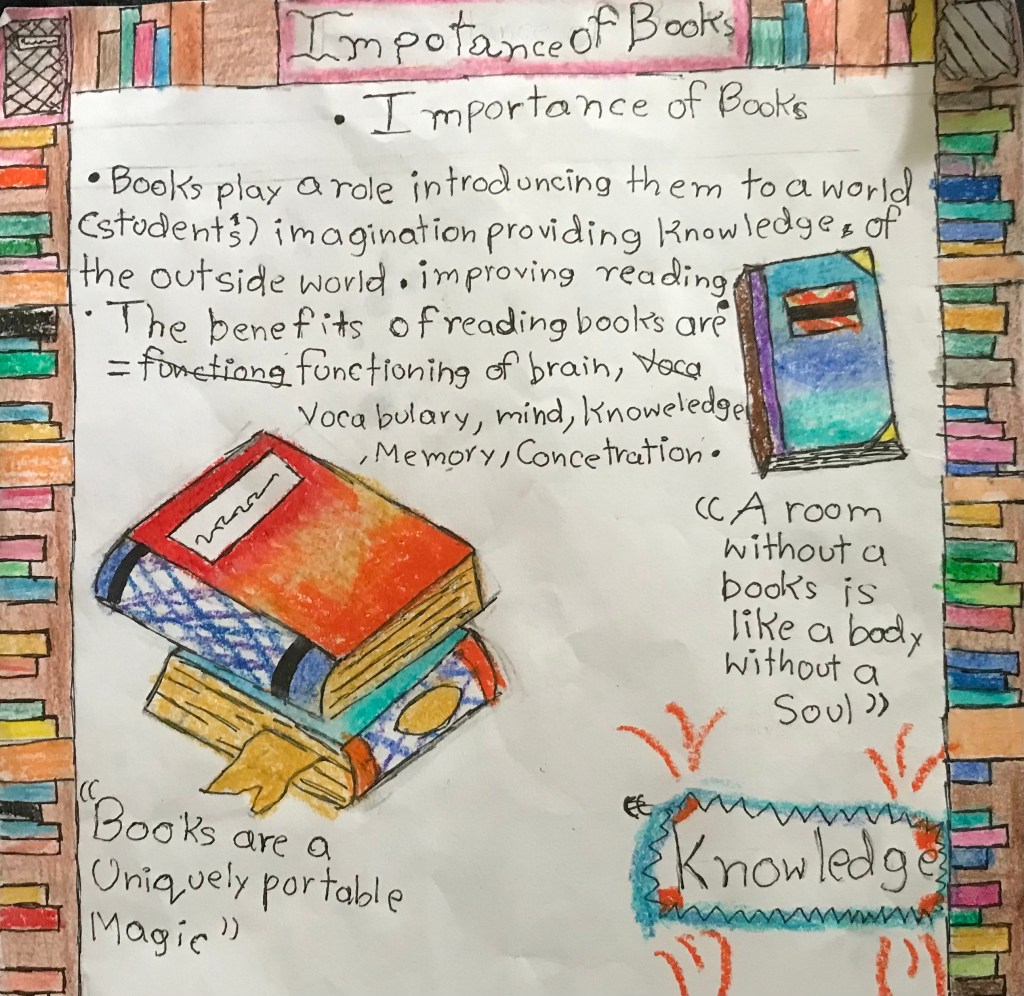 Impotance of Books
• Importance of Books
• Books play a role introduncing them to a world
(student's) imagination providing Knowledge, of
the outside world. improving reading
• The benefits of reading books are
= functiong functioning of brain, Voca
Vocabulary, mind, Knoweledge
, Memory, Concetration.
"A room
without a
books is
like a body
without a
Soul"
"Books are a
Uniquely portable
Magic"
Knowledge